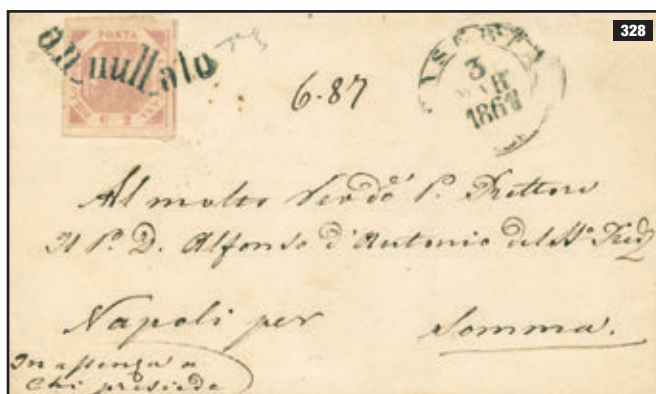 328
POSTA
annullato
G 2
6.87
3
1861
Al molto Rev.do P. Rettore
Il P. D. Alfonso d'Antonio del
Napoli per Somma.
In assenza a
chi presiede